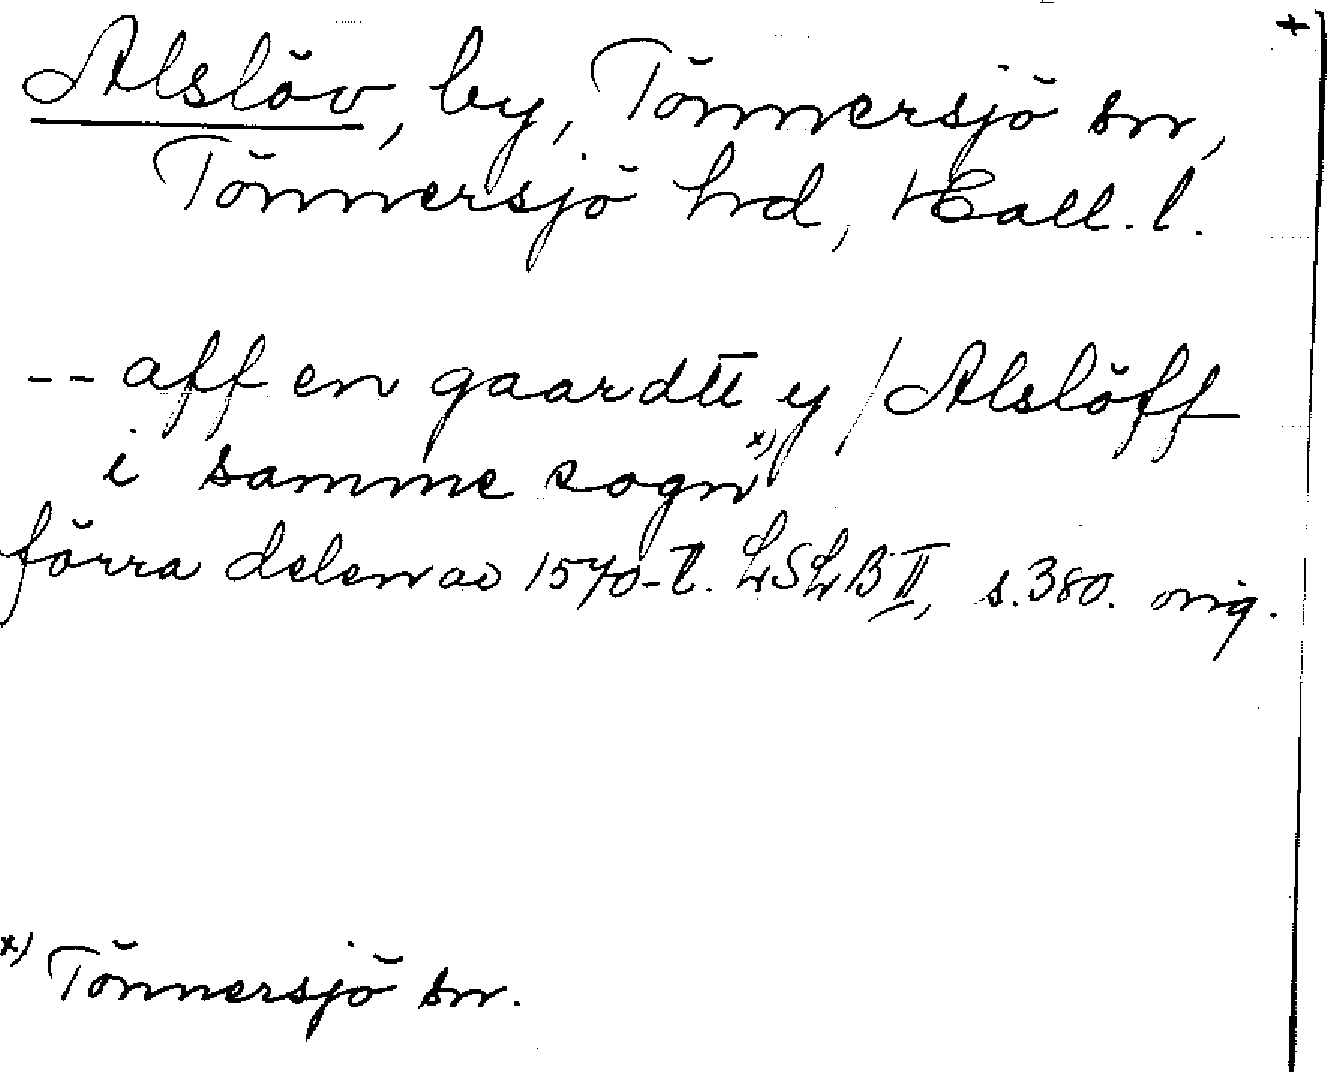 +
Alslöv, by, Tönnersjö sn,
Tönnersjö hd, Hall. l.
-- aff en gaardtt y / Alslöff
i samme sogn x)
förra delen av 1570-t. LSLB II, s. 380. orig.
x) Tönnersjö sn.